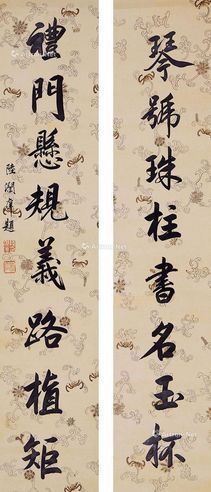 琴號珠柱書名玉杯
禮門懸規義路植矩
陸潤庠題